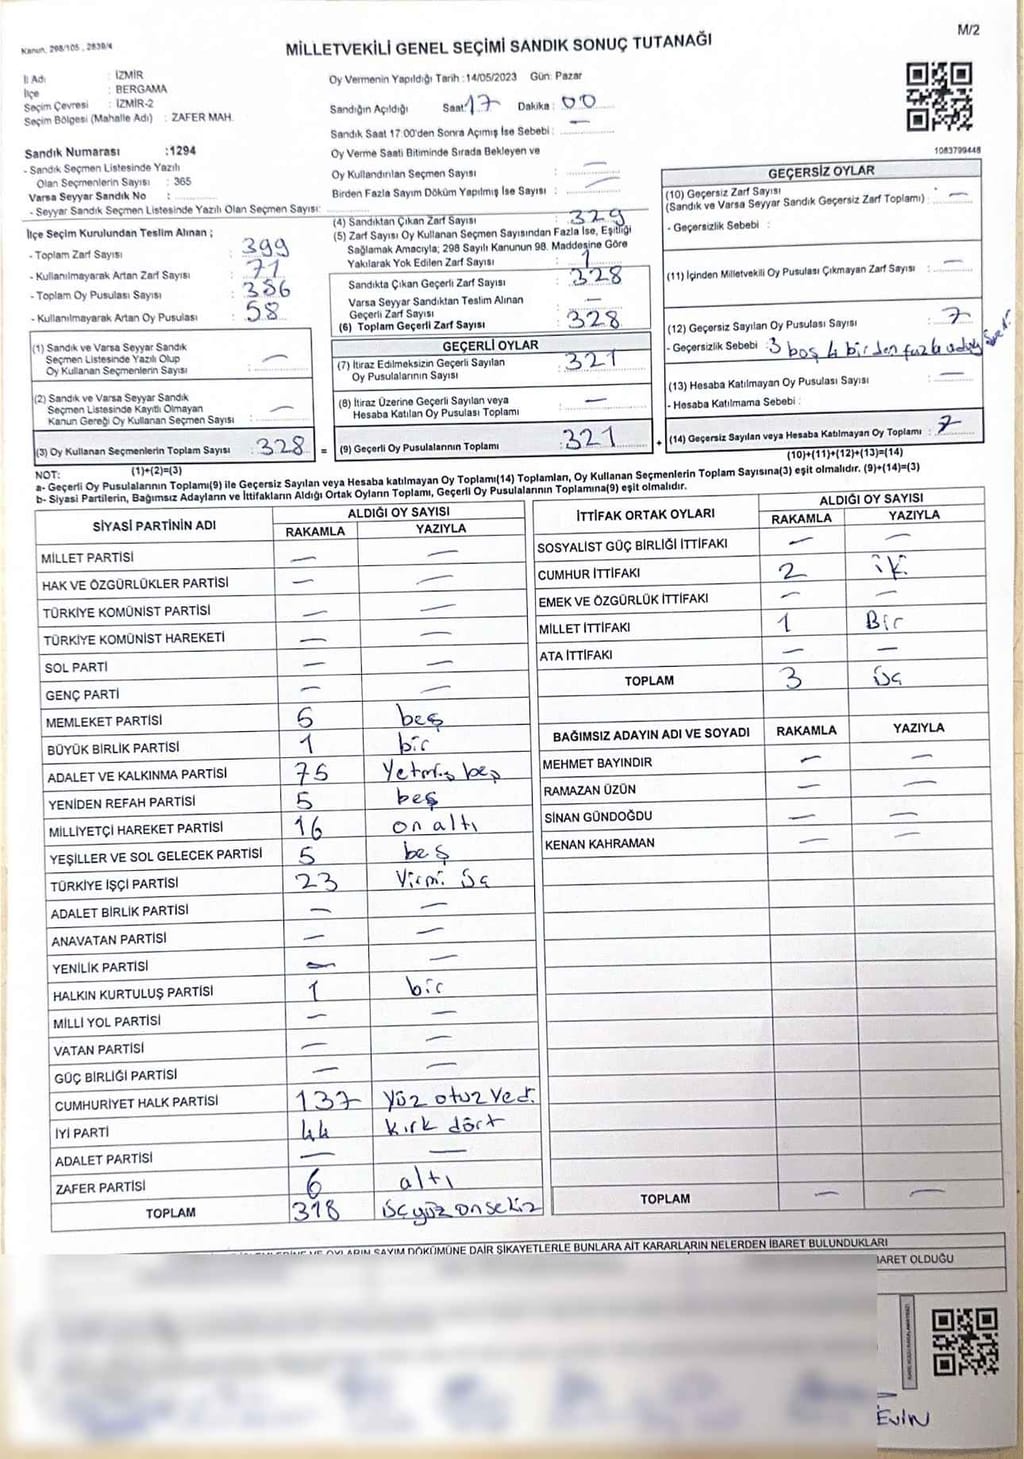 M/2
Kanun, 298/105 , 2839/4
MİLLETVEKİLİ GENEL SEÇİMİ SANDIK SONUÇ TUTANAĞI
İl Adı : İZMİR
İlçe : BERGAMA
Seçim Çevresi : İZMİR-2
Seçim Bölgesi (Mahalle Adı) : ZAFER MAH.
Sandık Numarası :1294
- Sandık Seçmen Listesinde Yazılı
Olan Seçmenlerin Sayısı : 365
Varsa Seyyar Sandık No :
- Seyyar Sandık Seçmen Listesinde Yazılı Olan Seçmen Sayısı:
İlçe Seçim Kurulundan Teslim Alınan ;
- Toplam Zarf Sayısı : 399
- Kullanılmayarak Artan Zarf Sayısı : 71
- Toplam Oy Pusulası Sayısı : 386
- Kullanılmayarak Artan Oy Pusulası : 58
(1) Sandık ve Varsa Seyyar Sandık
Seçmen Listesinde Yazılı Olup
Oy Kullanan Seçmenlerin Sayısı : —
(2) Sandık ve Varsa Seyyar Sandık
Seçmen Listesinde Kayıtlı Olmayan
Kanun Gereği Oy Kullanan Seçmen Sayısı : —
(3) Oy Kullanan Seçmenlerin Toplam Sayısı : 328 =
(1)+(2)=(3)
Oy Vermenin Yapıldığı Tarih :14/05/2023 Gün: Pazar
Sandığın Açıldığı Saat: 17 Dakika : 00
Sandık Saat 17:00'den Sonra Açımış İse Sebebi : —
Oy Verme Saati Bitiminde Sırada Bekleyen ve
Oy Kullandırılan Seçmen Sayısı : —
Birden Fazla Sayım Döküm Yapılmış İse Sayısı : —
(4) Sandıktan Çıkan Zarf Sayısı : 329
(5) Zarf Sayısı Oy Kullanan Seçmen Sayısından Fazla İse, Eşitliği
Sağlamak Amacıyla; 298 Sayılı Kanunun 98. Maddesine Göre
Yakılarak Yok Edilen Zarf Sayısı : 1
Sandıkta Çıkan Geçerli Zarf Sayısı : 328
Varsa Seyyar Sandıktan Teslim Alınan
Geçerli Zarf Sayısı : —
(6) Toplam Geçerli Zarf Sayısı : 328
GEÇERLİ OYLAR
(7) İtiraz Edilmeksizin Geçerli Sayılan
Oy Pusulalarının Sayısı : 321
(8) İtiraz Üzerine Geçerli Sayılan veya
Hesaba Katılan Oy Pusulası Toplamı : —
(9) Geçerli Oy Pusulalarının Toplamı : 321 +
1083799448
GEÇERSİZ OYLAR
(10) Geçersiz Zarf Sayısı
(Sandık ve Varsa Seyyar Sandık Geçersiz Zarf Toplamı) : —
- Geçersizlik Sebebi :
(11) İçinden Milletvekili Oy Pusulası Çıkmayan Zarf Sayısı : —
(12) Geçersiz Sayılan Oy Pusulası Sayısı : 7
- Geçersizlik Sebebi : 3 boş 4 birden fazla
(13) Hesaba Katılmayan Oy Pusulası Sayısı : —
- Hesaba Katılmama Sebebi :
(14) Geçersiz Sayılan veya Hesaba Katılmayan Oy Toplamı : 7
(10)+(11)+(12)+(13)=(14)
NOT:
a- Geçerli Oy Pusulalarının Toplamı(9) ile Geçersiz Sayılan veya Hesaba katılmayan Oy Toplamı(14) Toplamları, Oy Kullanan Seçmenlerin Toplam Sayısına(3) eşit olmalıdır. (9)+(14)=(3)
b- Siyasi Partilerin, Bağımsız Adayların ve İttifakların Aldığı Ortak Oyların Toplamı, Geçerli Oy Pusulalarının Toplamına(9) eşit olmalıdır.
SİYASİ PARTİNİN ADI ALDIĞI OY SAYISI
RAKAMLA YAZIYLA
MİLLET PARTİSİ — —
HAK VE ÖZGÜRLÜKLER PARTİSİ — —
TÜRKİYE KOMÜNİST PARTİSİ — —
TÜRKİYE KOMÜNİST HAREKETİ — —
SOL PARTİ — —
GENÇ PARTİ — —
MEMLEKET PARTİSİ 5 beş
BÜYÜK BİRLİK PARTİSİ 1 bir
ADALET VE KALKINMA PARTİSİ 75 Yetmiş beş
YENİDEN REFAH PARTİSİ 5 beş
MİLLİYETÇİ HAREKET PARTİSİ 16 on altı
YEŞİLLER VE SOL GELECEK PARTİSİ 5 beş
TÜRKİYE İŞÇİ PARTİSİ 23 Yirmi üç
ADALET BİRLİK PARTİSİ — —
ANAVATAN PARTİSİ — —
YENİLİK PARTİSİ — —
HALKIN KURTULUŞ PARTİSİ 1 bir
MİLLİ YOL PARTİSİ — —
VATAN PARTİSİ — —
GÜÇ BİRLİĞİ PARTİSİ — —
CUMHURİYET HALK PARTİSİ 137 Yüz otuz Yedi
İYİ PARTİ 44 Kırk dört
ADALET PARTİSİ — —
ZAFER PARTİSİ 6 altı
TOPLAM 318 üçyüz onsekiz
İTTİFAK ORTAK OYLARI ALDIĞI OY SAYISI
RAKAMLA YAZIYLA
SOSYALİST GÜÇ BİRLİĞİ İTTİFAKI — —
CUMHUR İTTİFAKI 2 iki
EMEK VE ÖZGÜRLÜK İTTİFAKI — —
MİLLET İTTİFAKI 1 Bir
ATA İTTİFAKI — —
TOPLAM 3 üç
BAĞIMSIZ ADAYIN ADI VE SOYADI RAKAMLA YAZIYLA
MEHMET BAYINDIR — —
RAMAZAN ÜZÜN — —
SİNAN GÜNDOĞDU — —
KENAN KAHRAMAN — —
TOPLAM — —
VE OYLARIN SAYIM DÖKÜMÜNE DAİR ŞİKAYETLERLE BUNLARA AİT KARARLARIN NELERDEN İBARET BULUNDUKLARI
İBARET OLDUĞU
EVİN